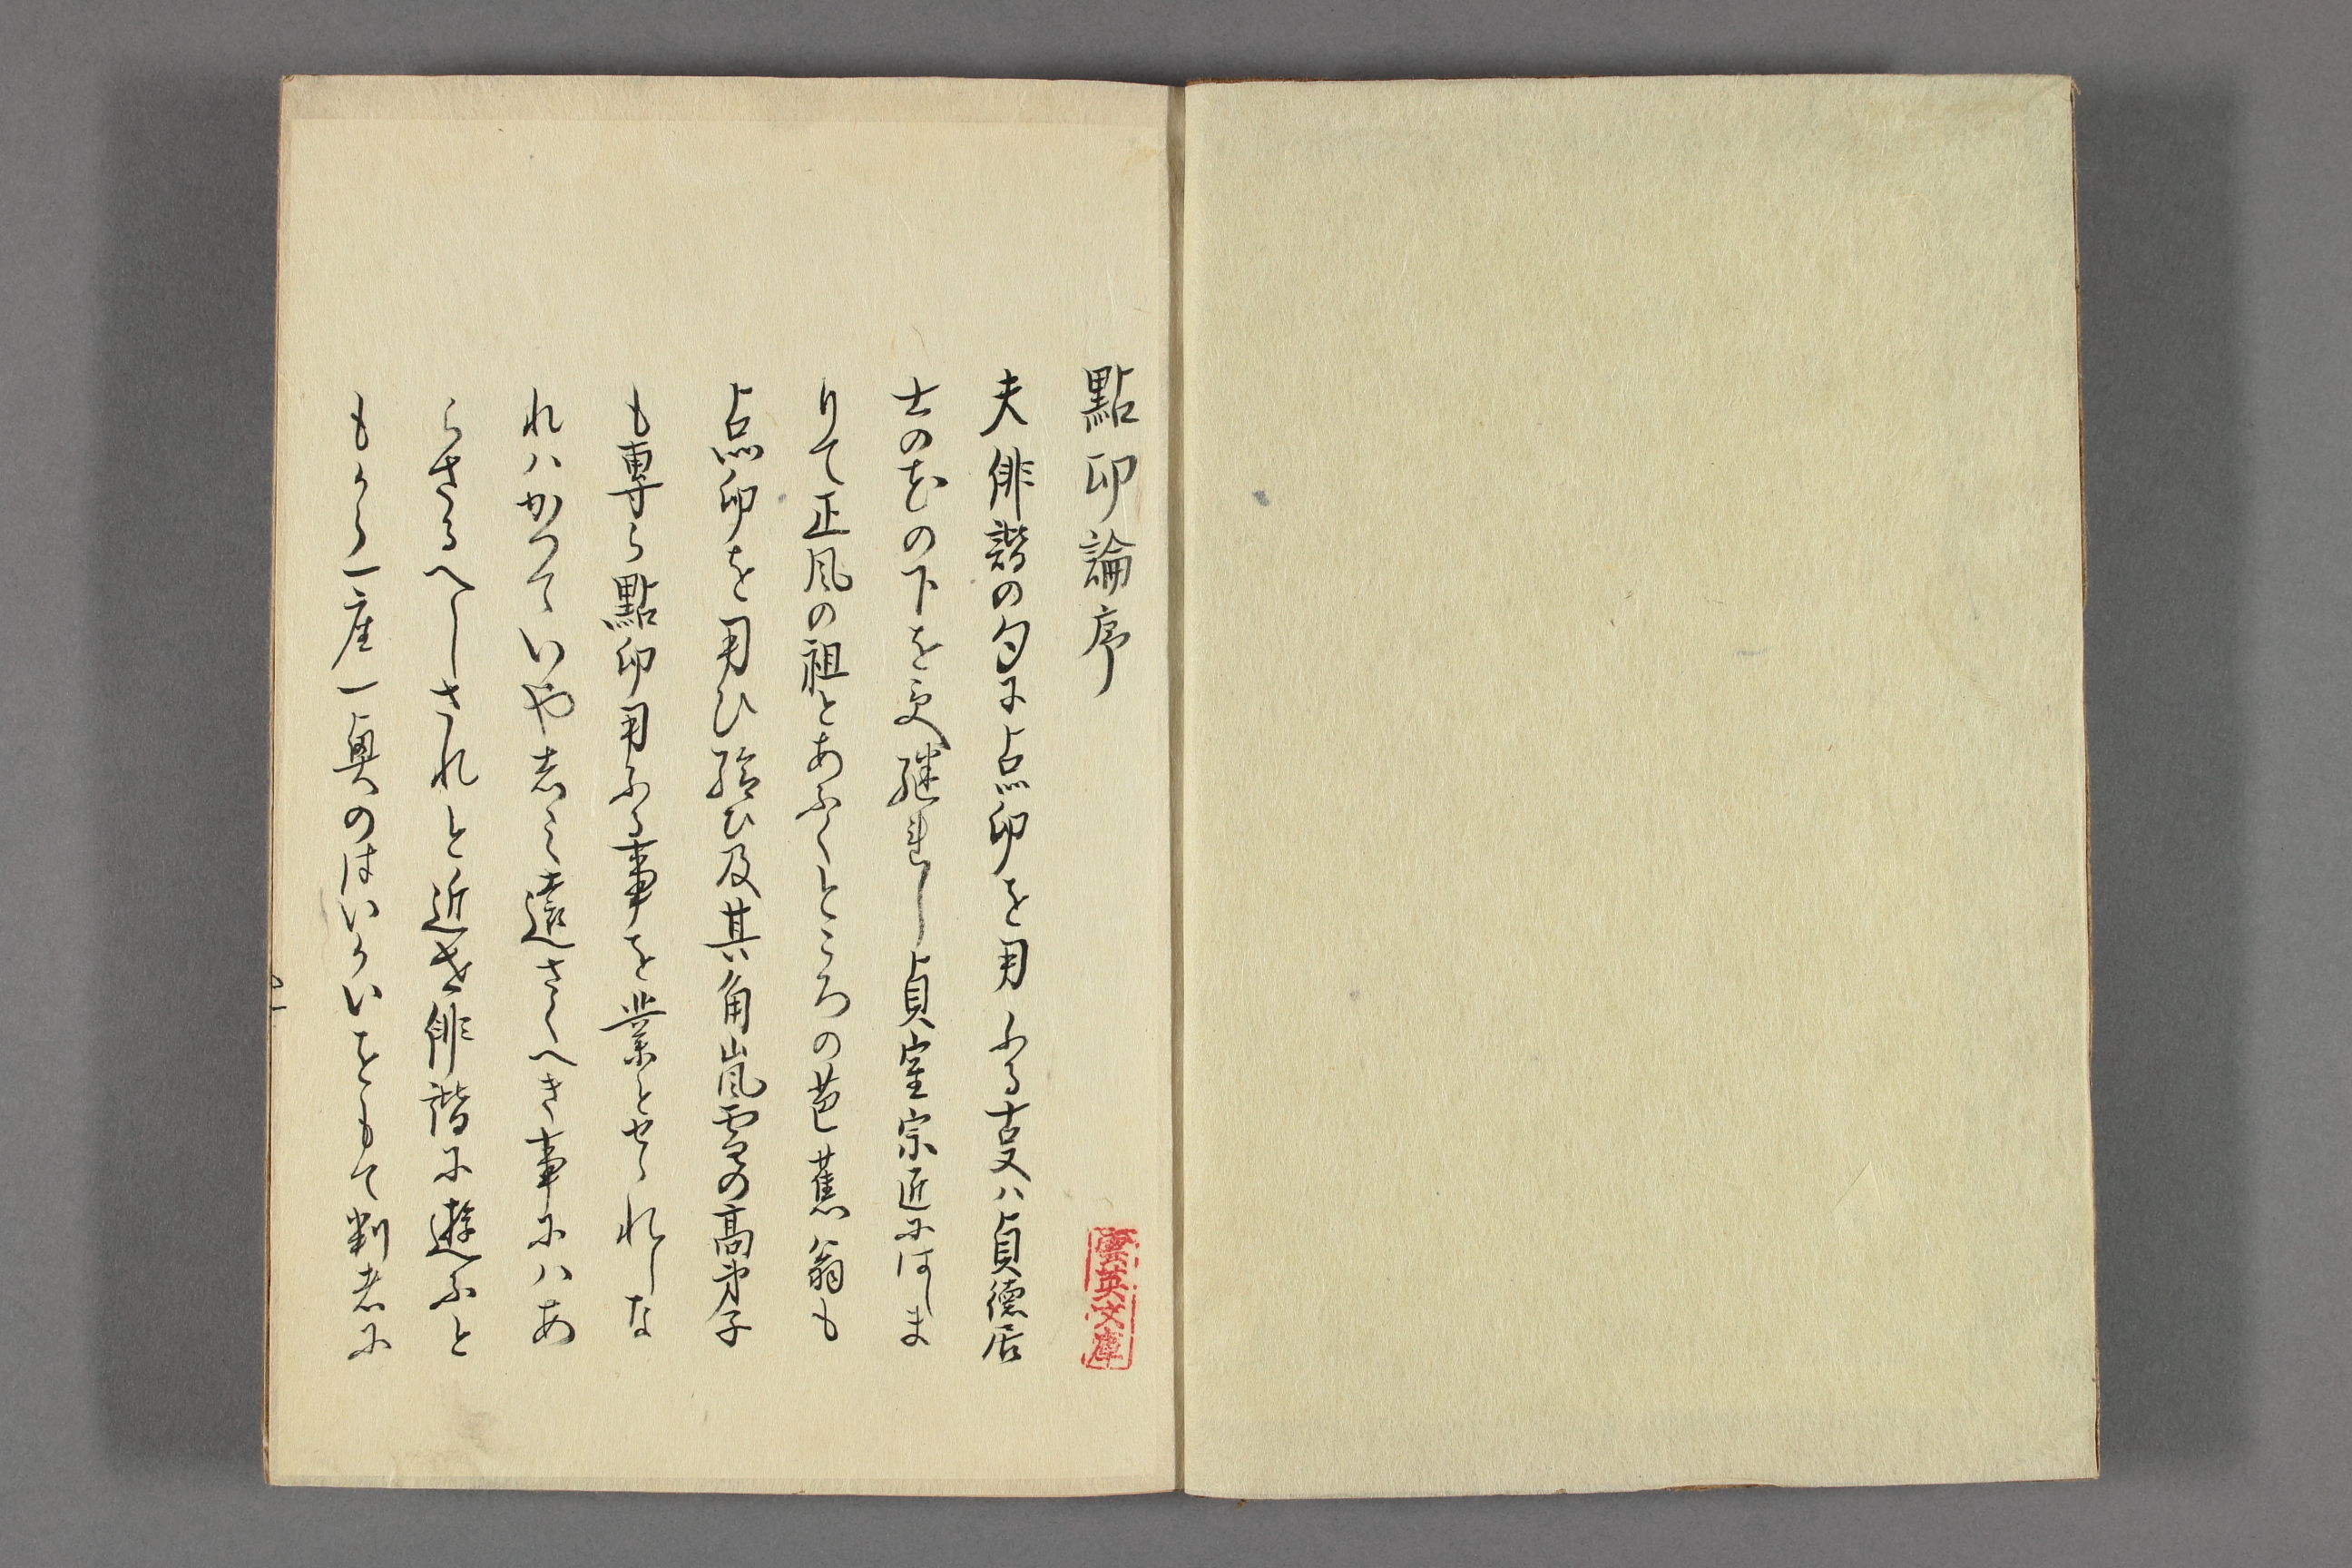 點印論序
夫俳諧の句に点印を用ふる支ハ貞徳居
士のむの下を受継れし貞室宗匠にはしま
りて正風の祖とあふくところの芭蕉翁も
点印を用ひ給ひ及其角嵐雪の高弟子
も専ら點印用ふる事を業とせられしな
れハかつていやしミ遠さくへき事にハあ
らさるへしされと近き俳諧に遊ふと
もから一座一興のはいかいをもて判者に
雲英文庫